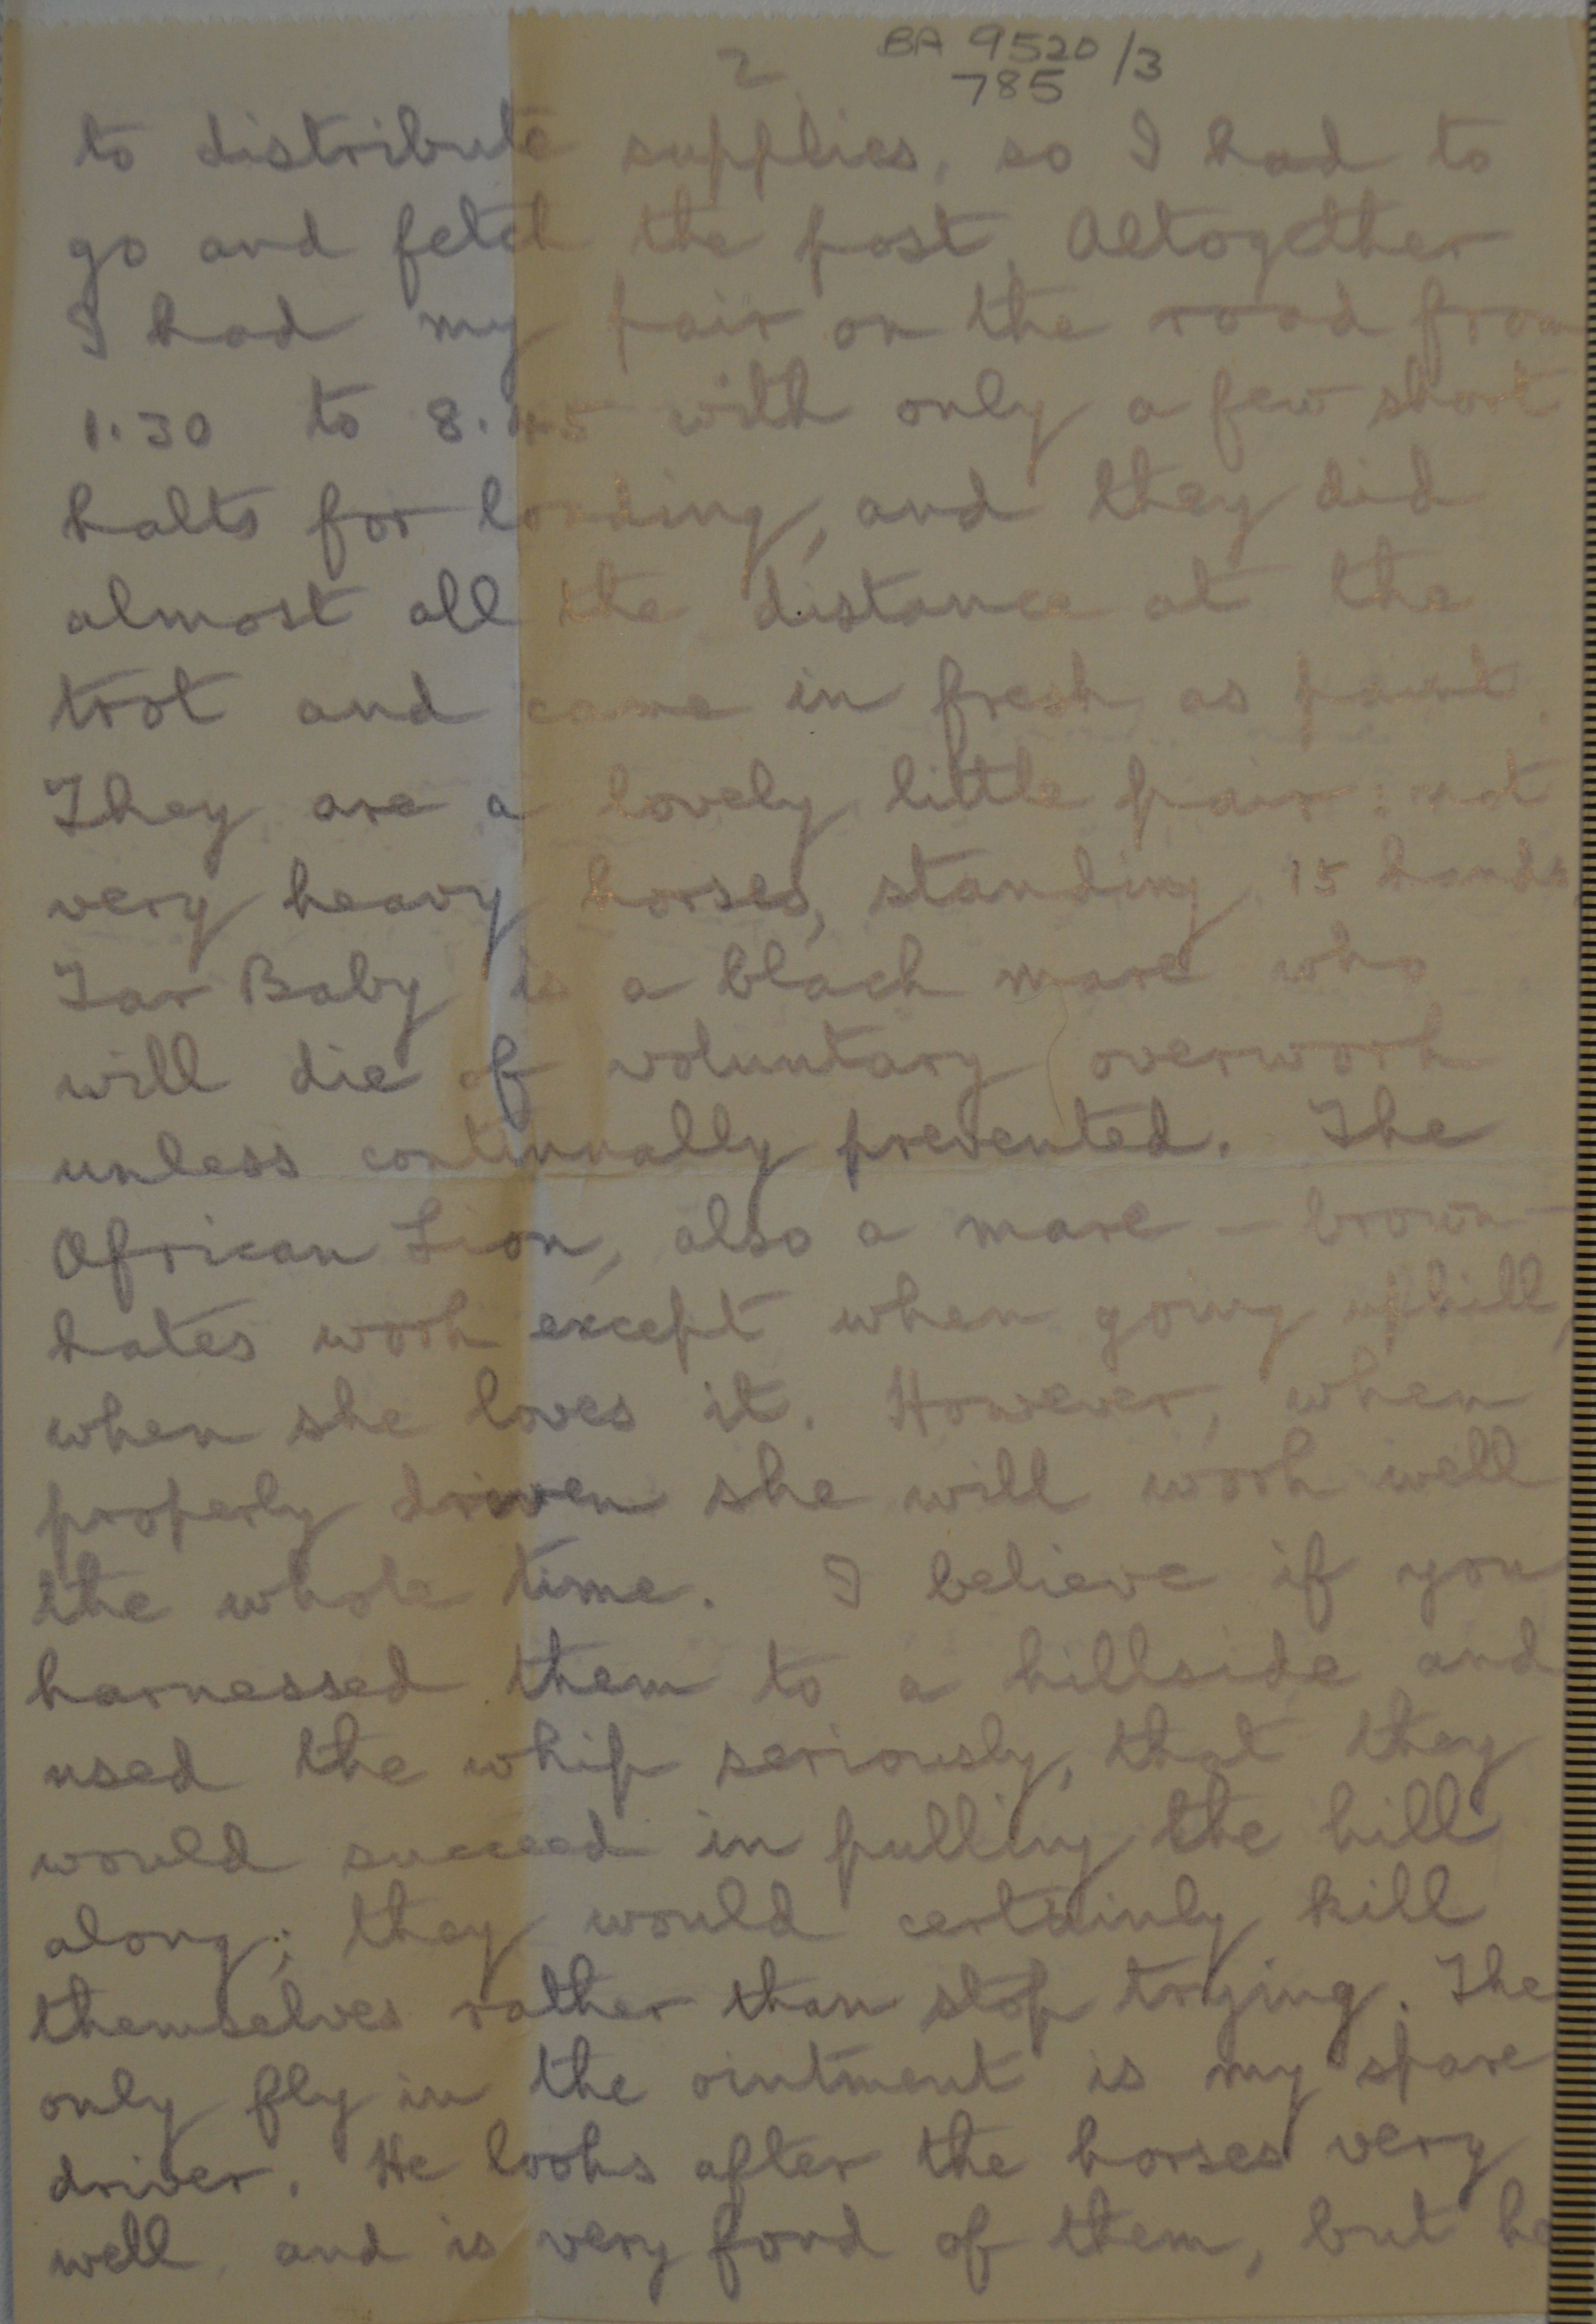 2
BA 9520/3
785
to distribute supplies, so I had to
go and fetch the post. Altogether
I had my pair on the road from
1.30 to 8.45 with only a few short
halts for loading, and they did
almost all the distance at the
trot and came in fresh as paint.
They are a lovely little pair: not
very heavy horses, standing 15 hands
Tar Baby is a black mare who
will die of voluntary overwork
unless continually prevented. The
African Lion, also a mare – brown –
hates work except when going uphill,
when she loves it. However, when
properly driven she will work well
the whole time. I believe if you
harnessed them to a hillside and
used the whip seriously, that they
would succeed in pulling the hill
along; they would certainly kill
themselves rather than stop trying. The
only fly in the ointment is my spare
driver. He looks after the horses very
well, and is very fond of them, but he